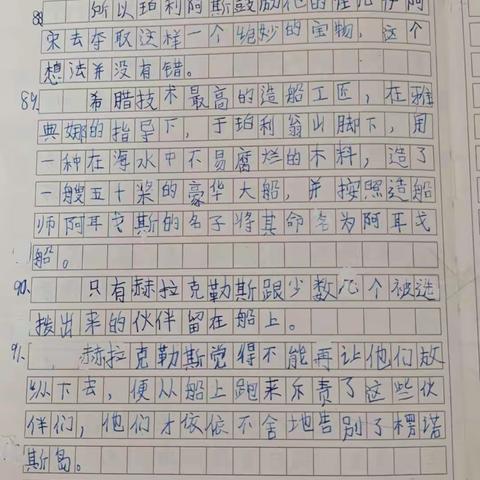 88 所以珀利阿斯鼓励他的侄儿伊阿
宋去夺取这样一个绝妙的宝物，这个
想法并没有错。
89. 希腊技术最高的造船工匠，在雅
典娜的指导下，于珀利翁山脚下，用
一种在海水中不易腐烂的木料，造了
一艘五十桨的豪华大船，并按照造船
师阿耳戈斯的名子将其命名为阿耳戈
船。
90. 只有赫拉克勒斯跟少数几个被选
拨出来的伙伴留在船上。
91. 赫拉克勒斯觉得不能再让他们放
纵下去，便从船上跑来斥责了这些伙
伴们，他们才依依不舍地告别了楞诺
斯岛。